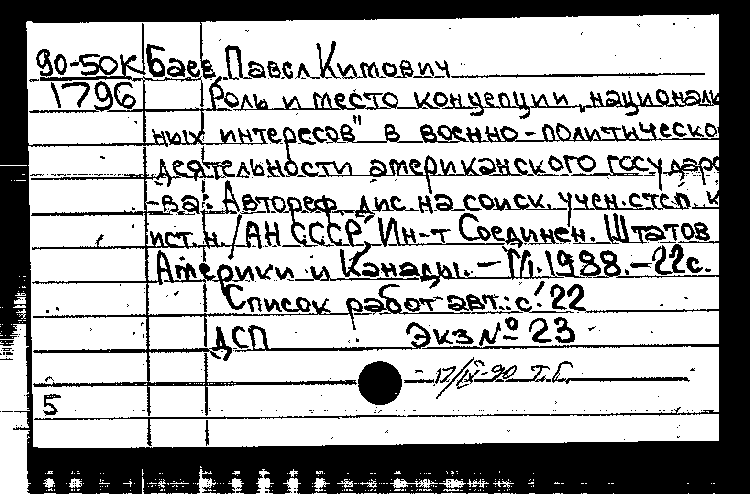 90-50К Баев Павел Кимович
1796 Роль и место концепции „националь
ных интересов" в военно-политическо
деятельности американского государс
-ва: Автореф. дис. на соиск. учен. степ. к
ист. н. /АН СССР, Ин-т Соединен. Штатов
Америки и Канады. - М. 1988. - 22с.
Список работ авт.: с. 22
ДСП Экз № 23
17/IX-90 Т.Г.
5